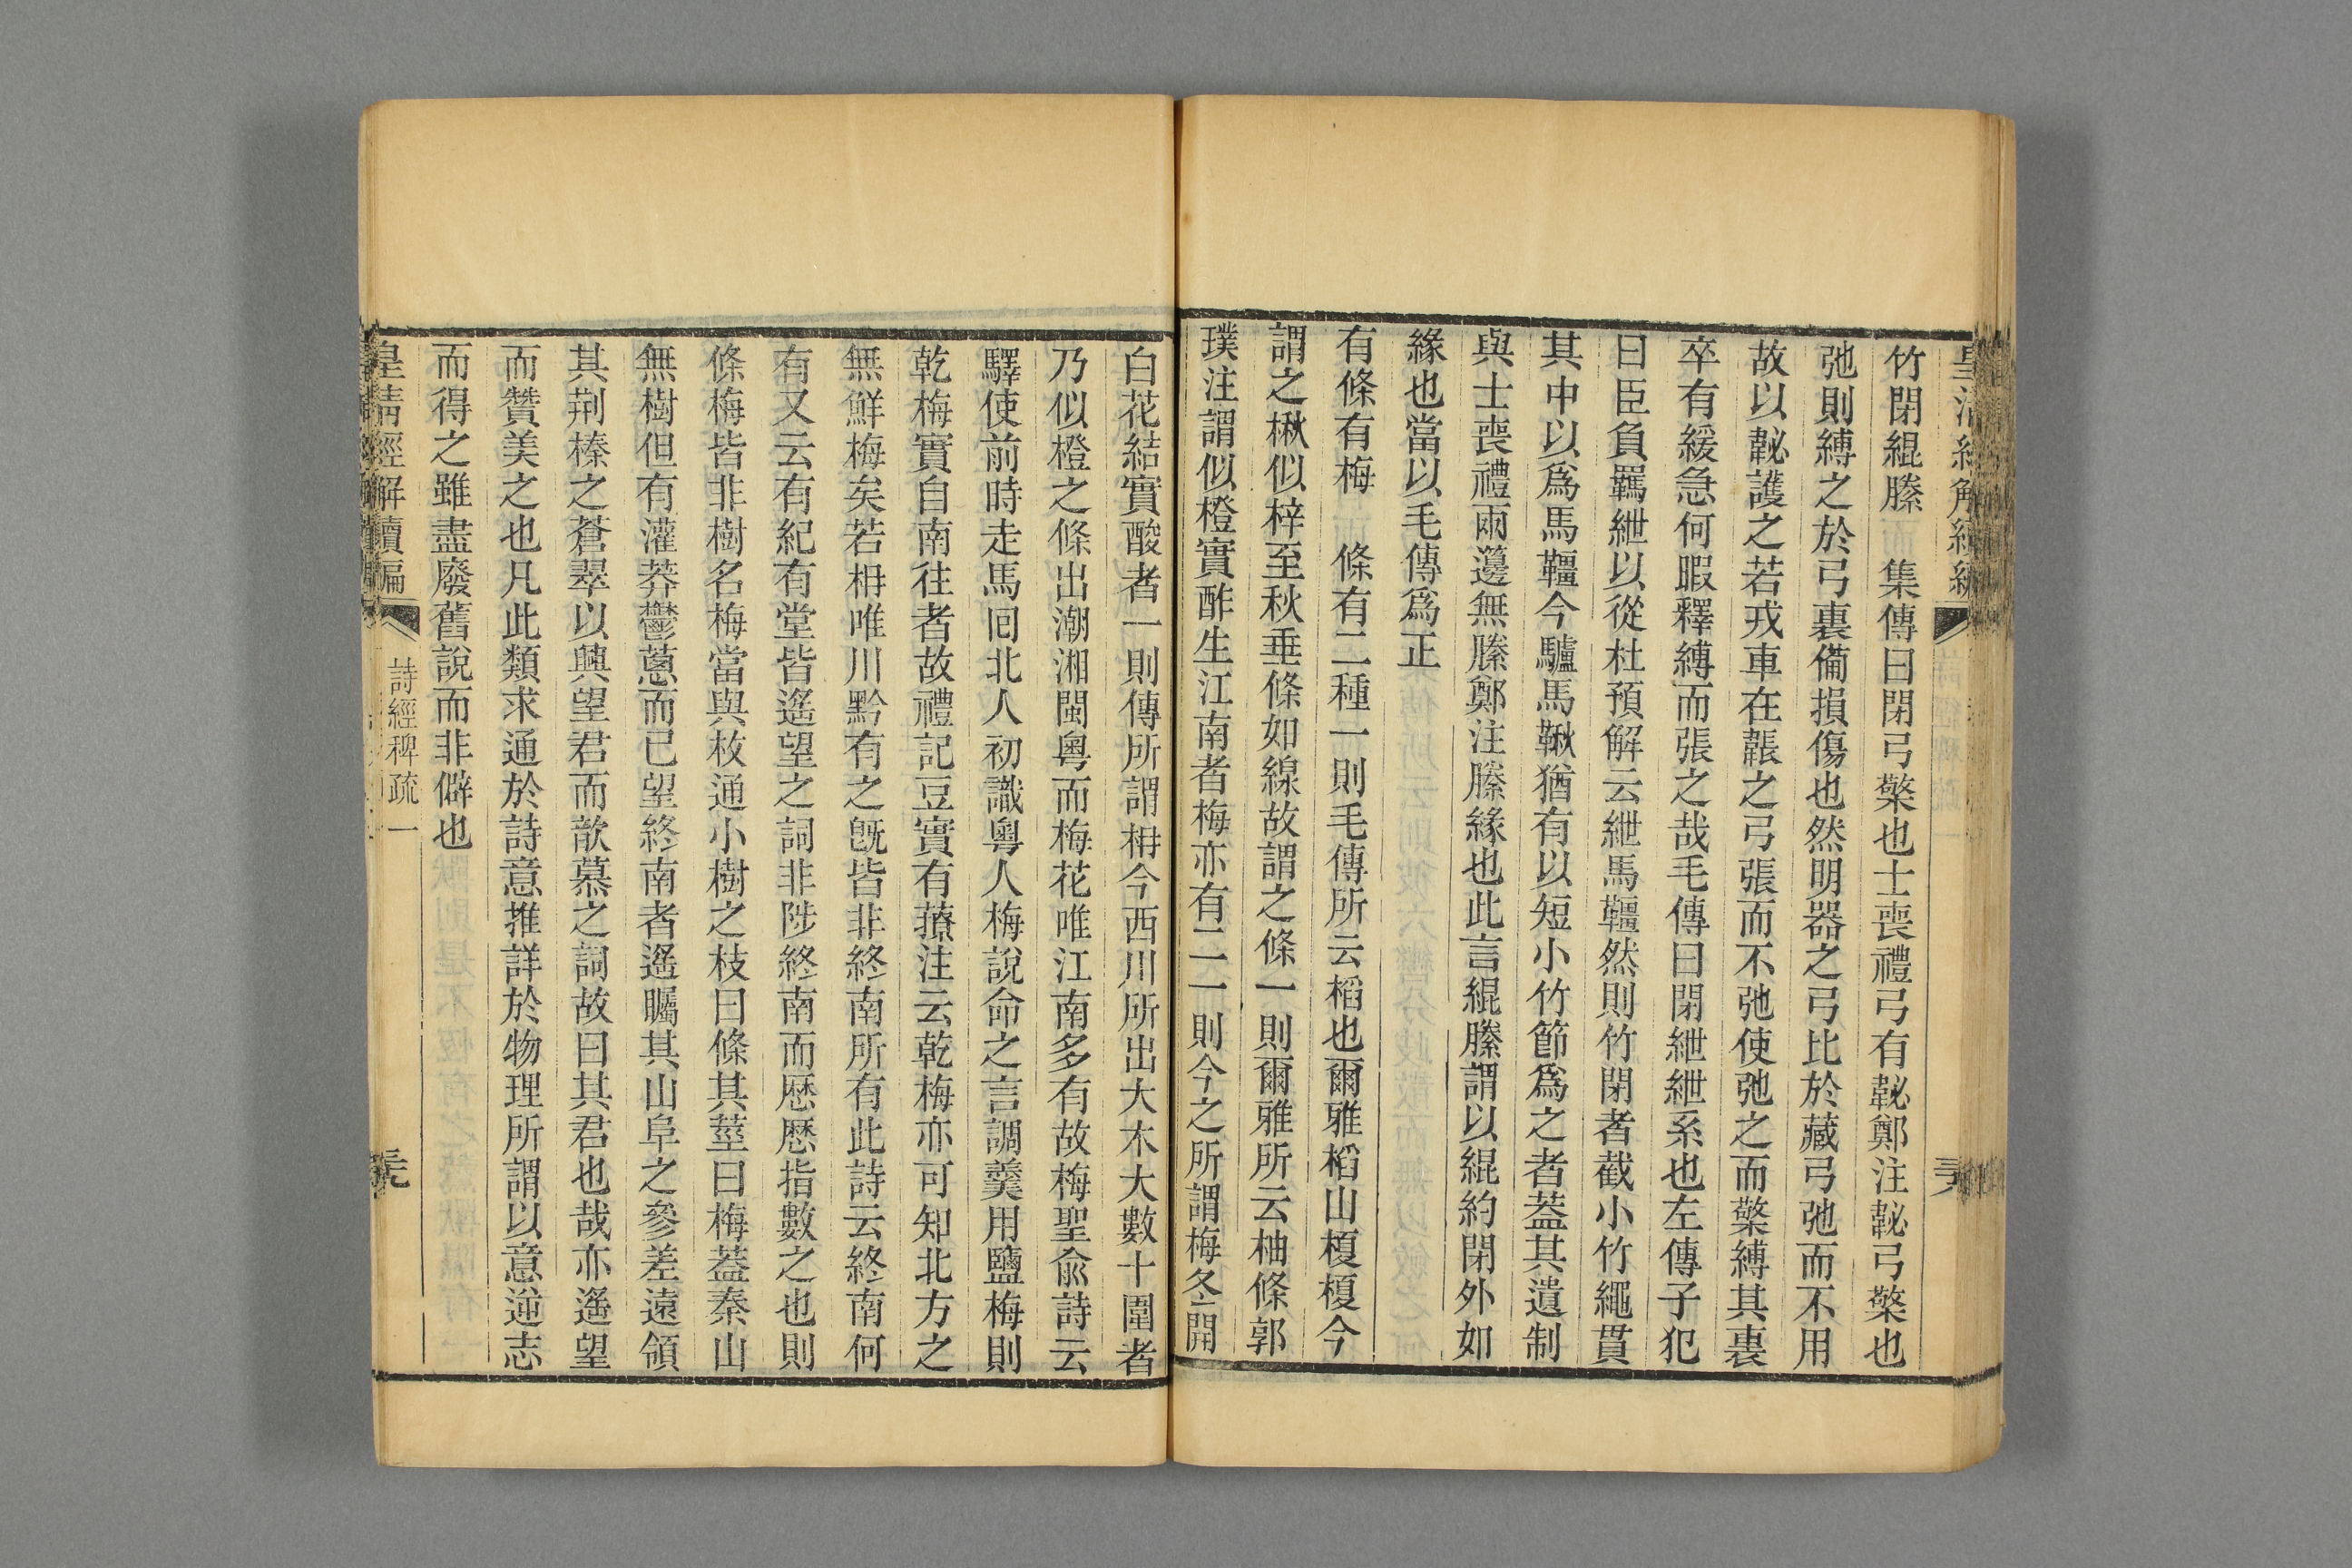 竹閉緄縢　集傳曰閉弓檠也士喪禮弓有䪐鄭注䪐弓檠也
弛則縛之於弓裏備損傷也然明器之弓比於藏弓弛而不用
故以䪐護之若戎車在韔之弓張而不弛使弛之而檠縛其裏
卒有緩急何暇釋縛而張之哉毛傳曰閉紲紲系也左傳子犯
曰臣負羈紲以從杜預解云紲馬韁然則竹閉者截小竹繩貫
其中以爲馬韁今驢馬鞦猶有以短小竹節爲之者蓋其遺制
與士喪禮兩籩無縢鄭注縢緣也此言緄縢謂以緄約閉外如
緣也當以毛傳爲正
有條有梅　條有二種一則毛傳所云稻也爾雅稻山榎榎今
謂之楸似梓至秋垂條如線故謂之條一則爾雅所云柚條郭
璞注謂似橙實酢生江南者梅亦有二一則今之所謂梅冬開
白花結實酸者一則傳所謂枏今西川所出大木大數十圍者
乃似橙之條出潮湘閩粵而梅花唯江南多有故梅聖俞詩云
驛使前時走馬囘北人初識粵人梅說命之言調羹用鹽梅則
乾梅實自南往者故禮記豆實有䕩注云乾梅亦可知北方之
無鮮梅矣若枏唯川黔有之旣皆非終南所有此詩云終南何
有又云有紀有堂皆遙望之詞非陟終南而歷歷指數之也則
條梅皆非樹名梅當與枚通小樹之枝曰條其莖曰梅蓋秦山
無樹但有灌莽鬱蔥而已望終南者遙矚其山阜之參差遠領
其荆榛之蒼翠以興望君而歆慕之詞故曰其君也哉亦遙望
而贊美之也凡此類求通於詩意推詳於物理所謂以意逆志
而得之雖盡廢舊說而非僻也
皇清經解續編　詩經稗疏一